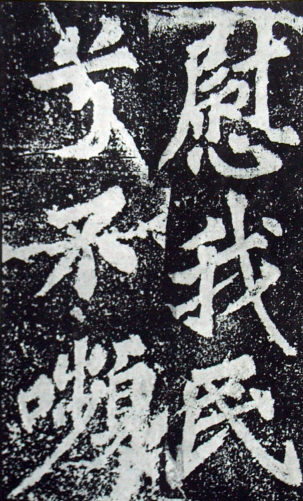 慰我民
兮不嚬